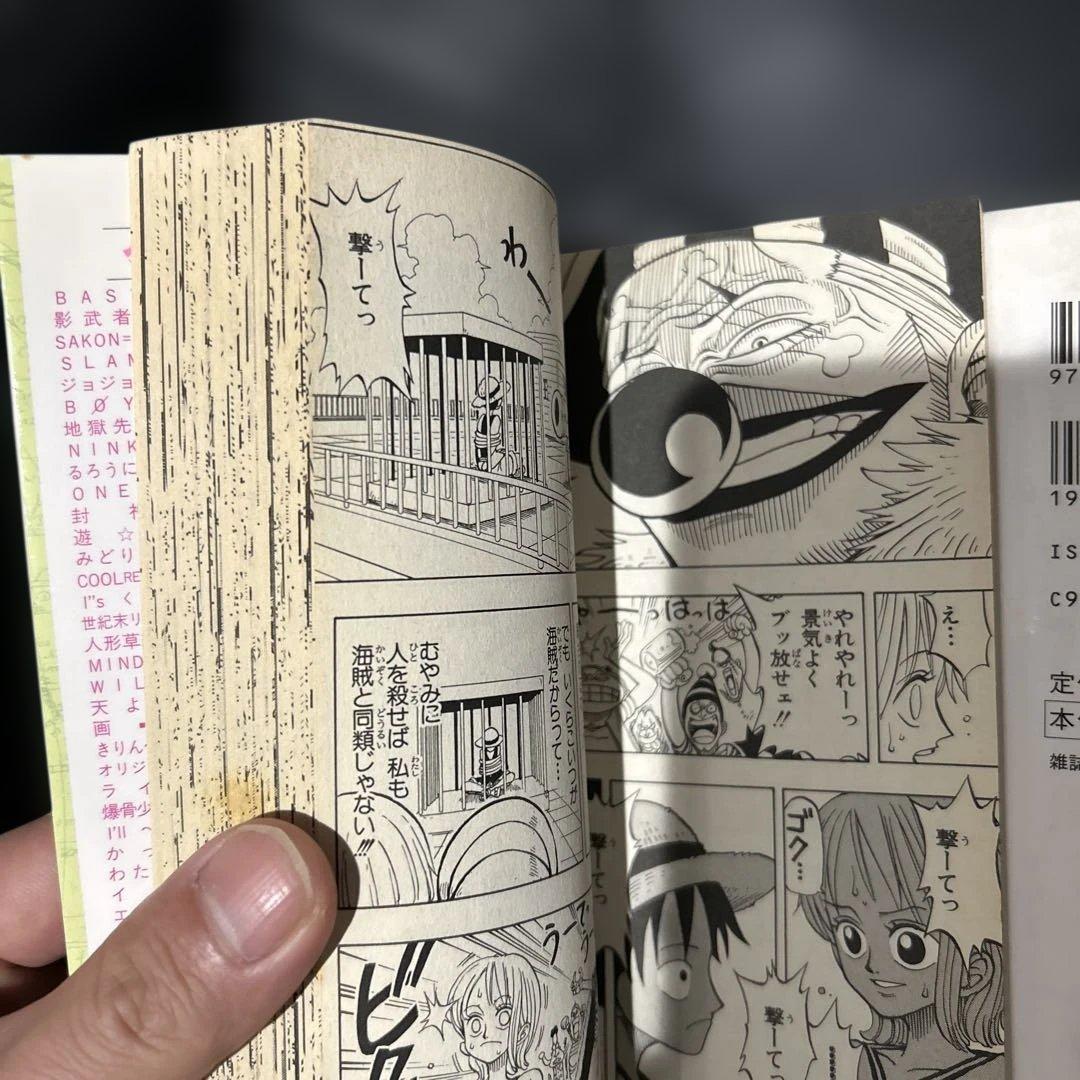 BAS
影武者
SAKON=
SLAM
ジョジョ
BØY
地獄先
NINK
るろうに
ONE
封
遊☆
みどり
COOLRE
I"s く
世紀末リ
人形草
MIND
WIL
天よ
画
きりん
オリジ
ライ
爆骨少
I'll ~
かっ
わた
イ
エ
え…
やれやれーっ
景気よく
けいき
ブッ放せェ!!
ぱな
っはっは
撃ーてっ
う
ゴク…
撃ーてっ
う
撃ーてっ
う
撃ーてっ
わー
撃ーてっ
う
でも いくらこいつが
海賊だからって…
むやみに
人を殺せば 私も
ひと ころ わたし
海賊と同類じゃない!!!
かいぞく どうるい
うーてっ
ビク
97
19
IS
C9
定
本
雑誌